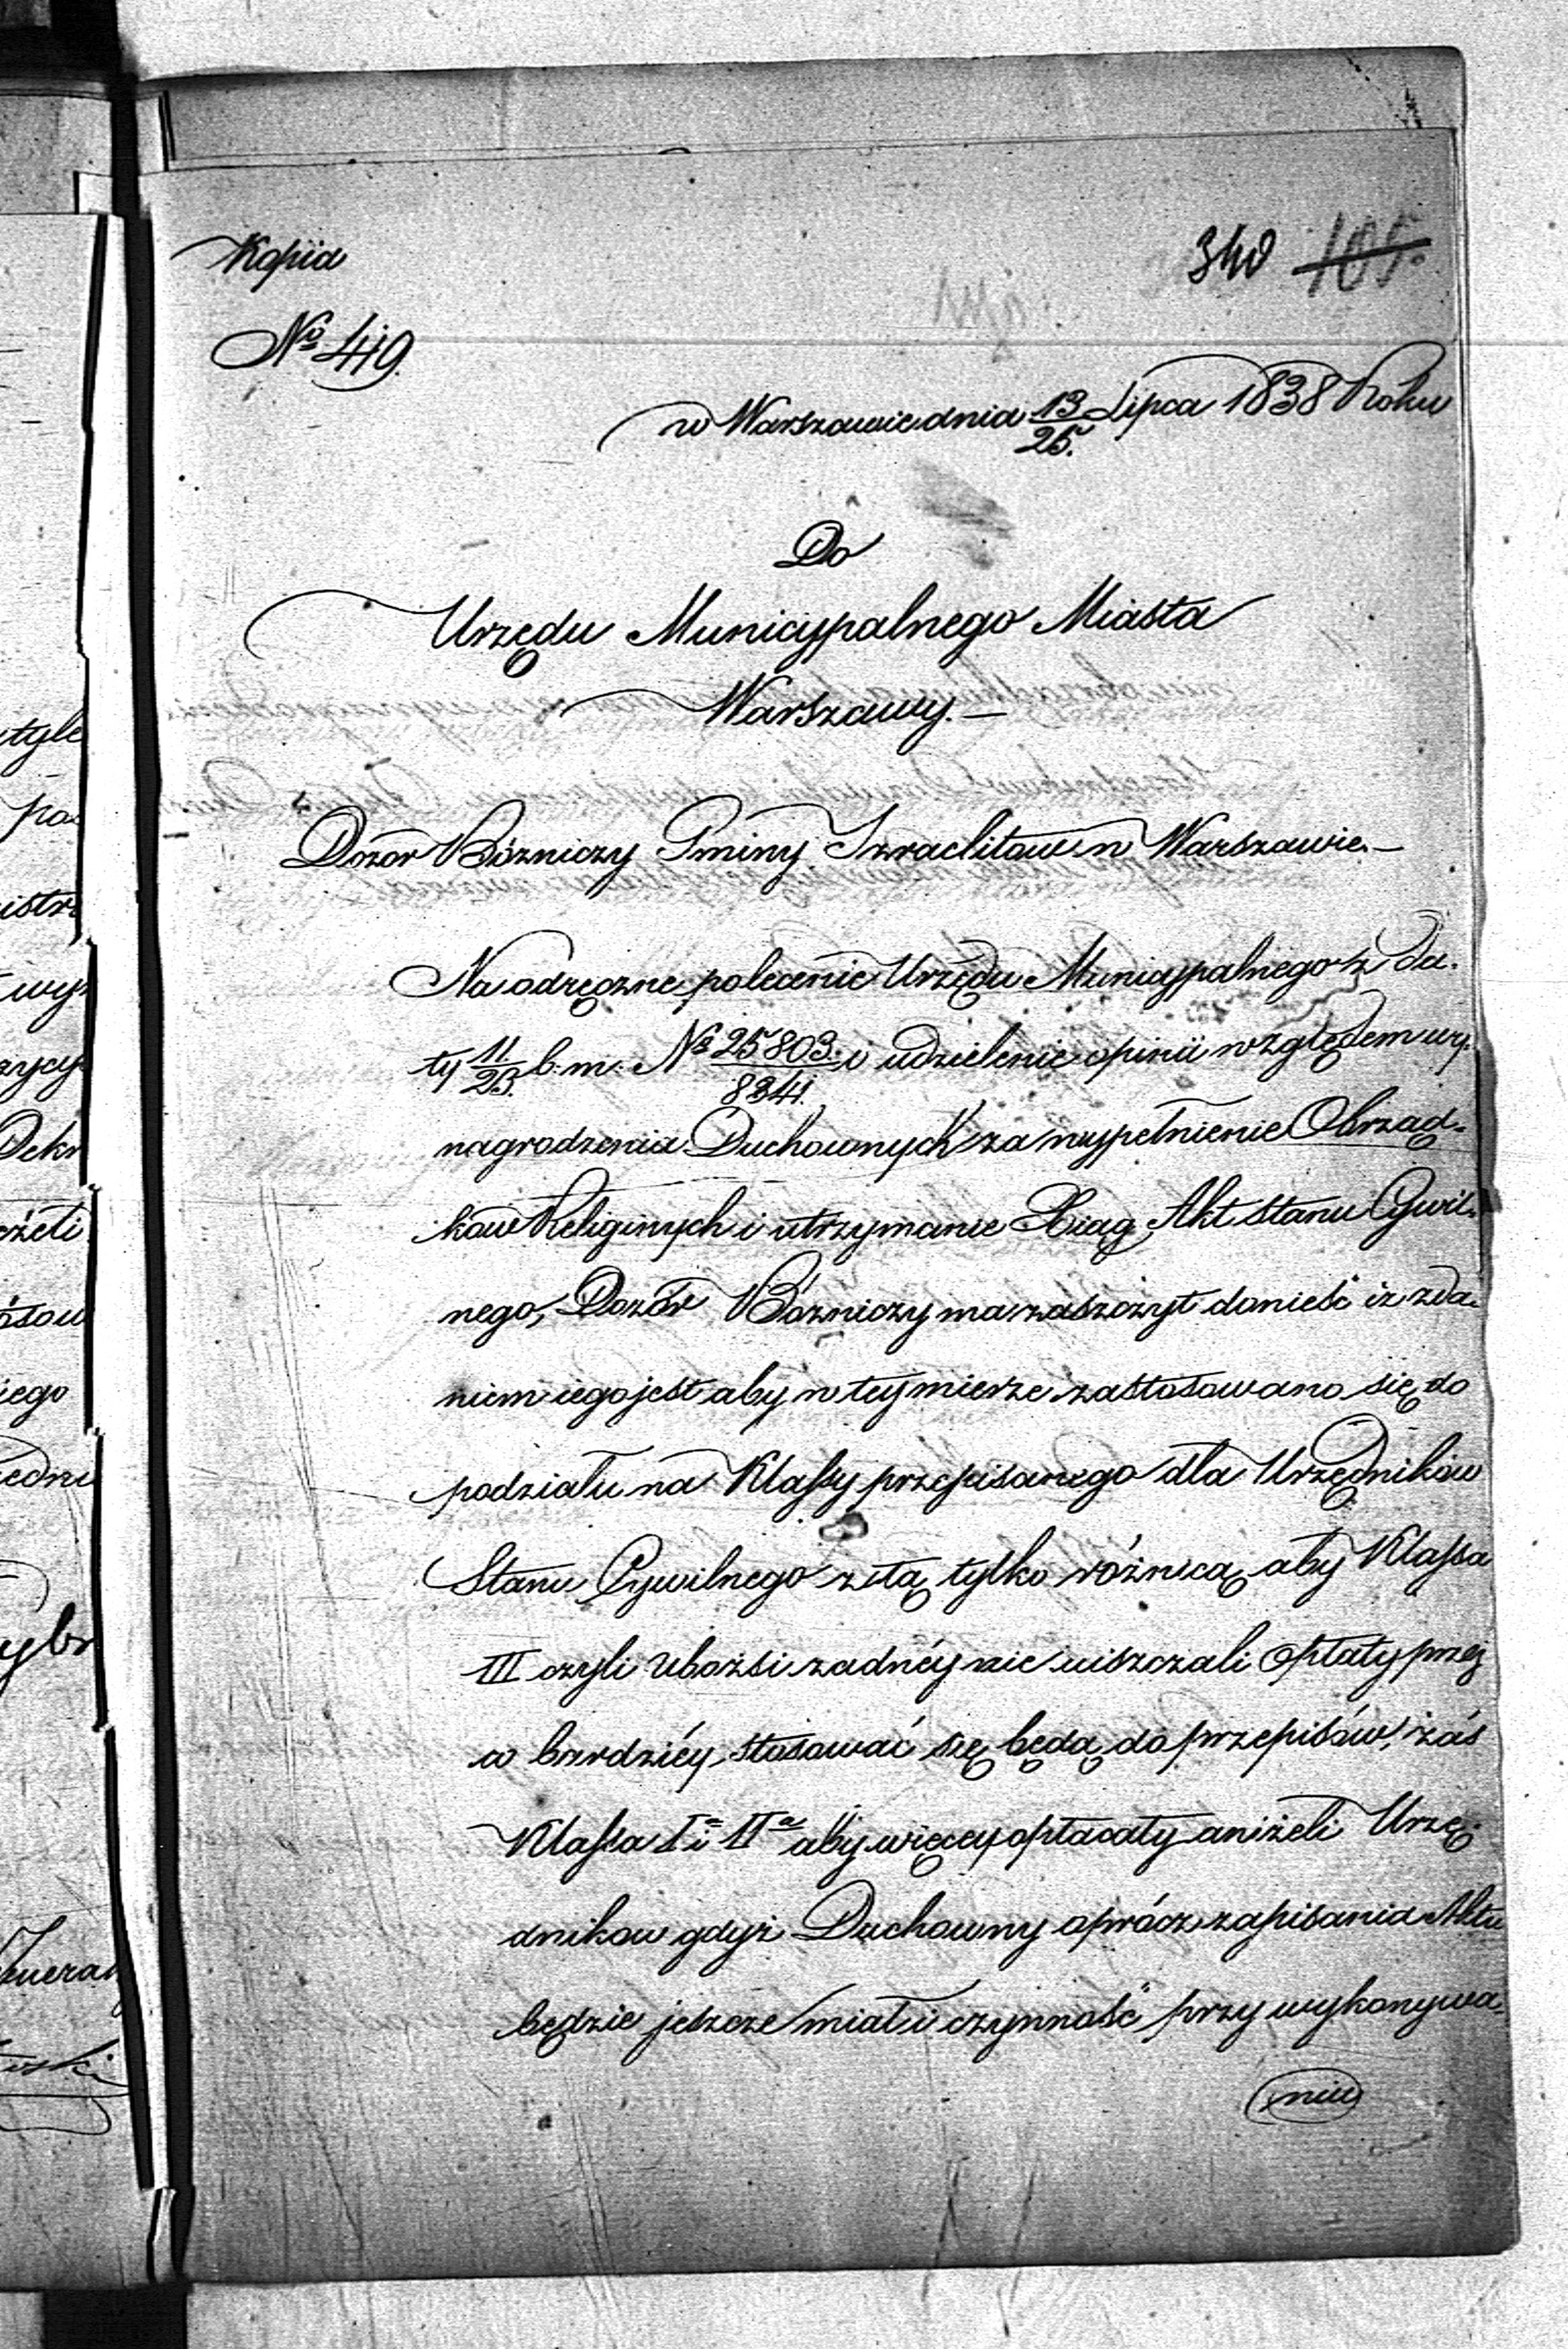 Kopia
340 105.
No 419.
w Warszawie dnia 13/25. Lipca 1838 Roku
Do
Urzędu Municypalnego Miasta
Warszawy. —
Dozor Bózniczy Gminy Izraelitow w Warszawie. —
Na odręczne polecenie Urzędu Municypalnego z da-
ty 11/23. b. m. No 25803./8341. o udzielenie opinii względem wy-
nagrodzenia Duchownych za wypełnienie Obrząd-
kow Religinych i utrzymanie Xiąg Akt Stanu Cywil-
nego, Dozór Bózniczy ma zaszczyt donieść iż zda-
niem iego jest aby w tey mierze zastosowano się do
podziału na Klassy przepisanego dla Urzędników
Stanu Cywilnego z tą tylko różnicą aby Klassa
III czyli ubożsi żadnéy nie uiszczali opłaty przez
co bardziéy stosować się będą do przepisów, zaś
Klassa I i IIa aby więcey opłacały aniżeli Urzę-
dnikow gdyż Duchowny oprócz zapisania Aktu
będzie jeszcze miał i czynność przy wykonywa-
niu
tyle
wy
Dekr
iego